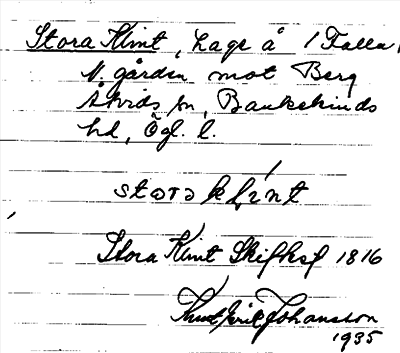 Stora Klint, hage å 1 Falla,
N. gården mot Berg
Åtvids sn, Bankekinds
hd, Ögl. l.
stora klint
Stora Klint Skifksf 1816
Knut Erik Johansson
1935